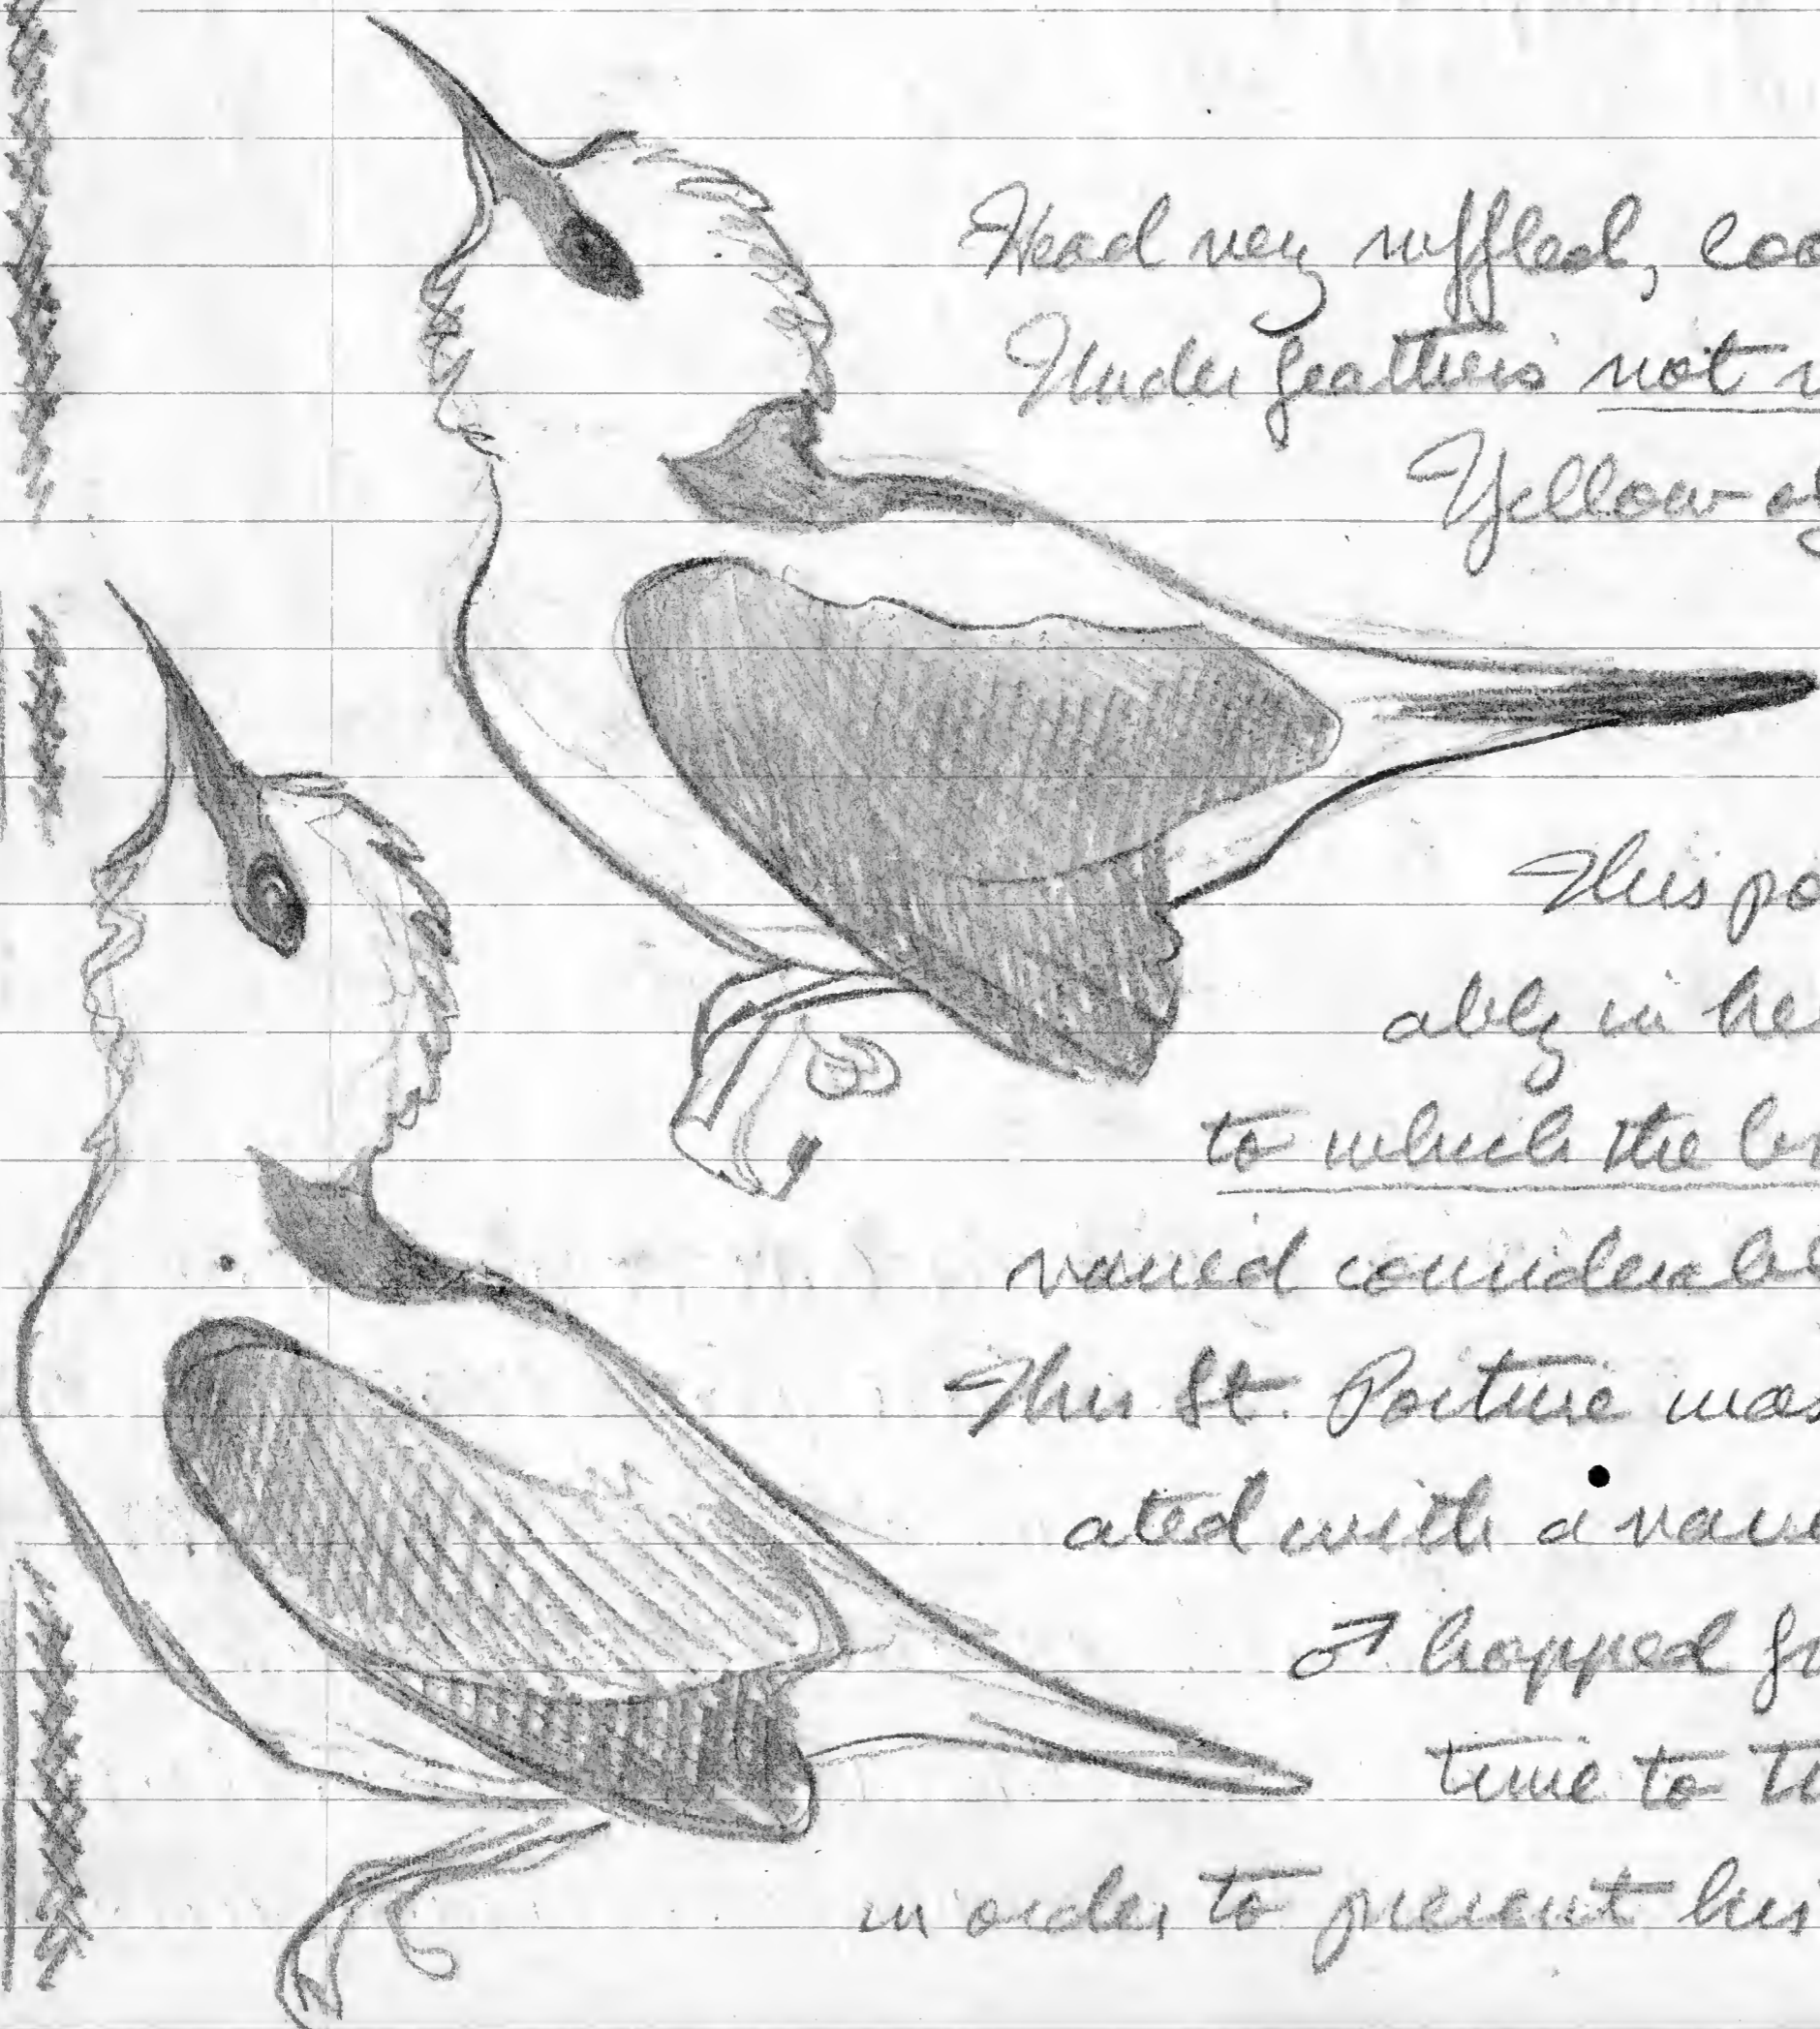 Head very ruffled, loo
Under feathers not r
Yellow of
This po
ably in he
to which the br
varied considerabl
This St. Posture was
ated with a vari
♂ hopped fr
time to ti
in order to present his